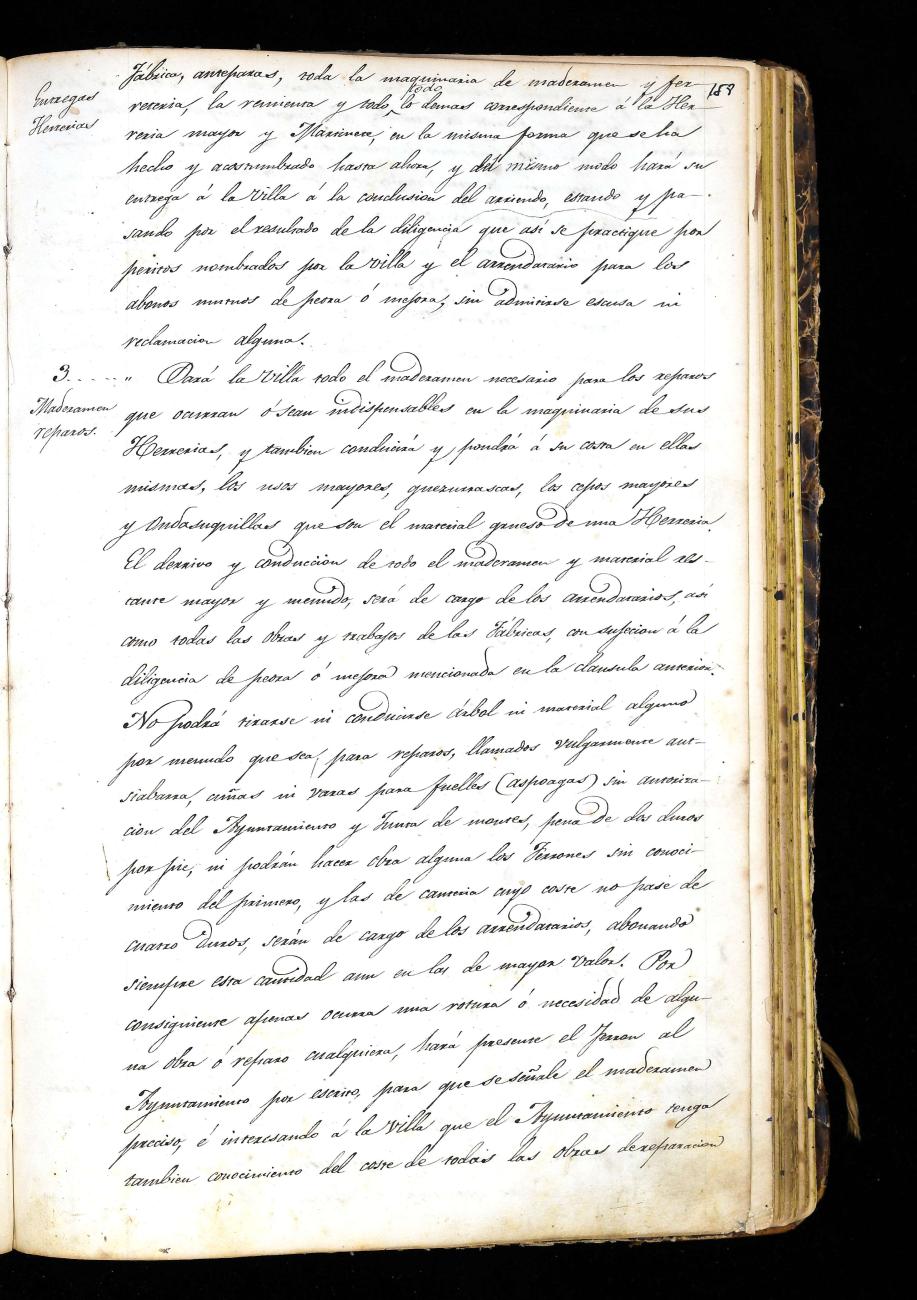 159
Entregas
Herrerias
Fábrica, anteparas, toda la maquinaria de maderamen y fer-
reteria, la remienta y todo lo demas correspondiente á la Her-
todo
reria mayor y Martinete, en la misma forma que se ha
hecho y acostumbrado hasta ahora, y del mismo modo hará su
entrega á la Villa á la conclusion del arriendo, estando y pa-
sando por el resultado de la diligencia que asi se practique por
peritos nombrados por la Villa y el arrendatario para los
abonos mutuos de peora ó mejora, sin admitirse escusa ni
reclamacion alguna.
3.....
Maderamen
reparos.
" Dará la Villa todo el maderamen necesario para los reparos
que ocurran ó sean indispensables en la maquinaria de sus
Herrerias, y tambien conducirá y pondrá á su costa en ellas
mismas, los usos mayores, guezurrascas, los cepos mayores
y Ondasuquillas que son el material grueso de una Herreria.
El derrivo y conduccion de todo el maderamen y material res-
tante mayor y menudo, será de cargo de los arrendatarios, asi
como todas las obras y trabajos de las Fábricas, con sujecion á la
diligencia de peora ó mejora mencionada en la clausula anterior.
No podrá tirarse ni conducirse árbol ni material alguno
por menudo que sea, para reparos, llamados vulgarmente aut-
siabarra, cuñas ni varas para fuelles (aspoagas) sin autoriza-
cion del Ayuntamiento y Junta de montes, pena de dos duros
por pie, ni podrán hacer obra alguna los Ferrones sin conoci-
miento del primero, y las de canteria cuyo coste no pase de
cuatro Duros, serán de cargo de los arrendatarios, abonando
siempre esta cantidad aun en las de mayor valor. Por
consiguiente apenas ocurra una rotura ó necesidad de algu-
na obra ó reparo cualquiera, hará presente el Ferron al
Ayuntamiento por escrito, para que se señale el maderamen
preciso, é interesando á la Villa que el Ayuntamiento tenga
tambien conocimiento del coste de todas las obras de reparacion